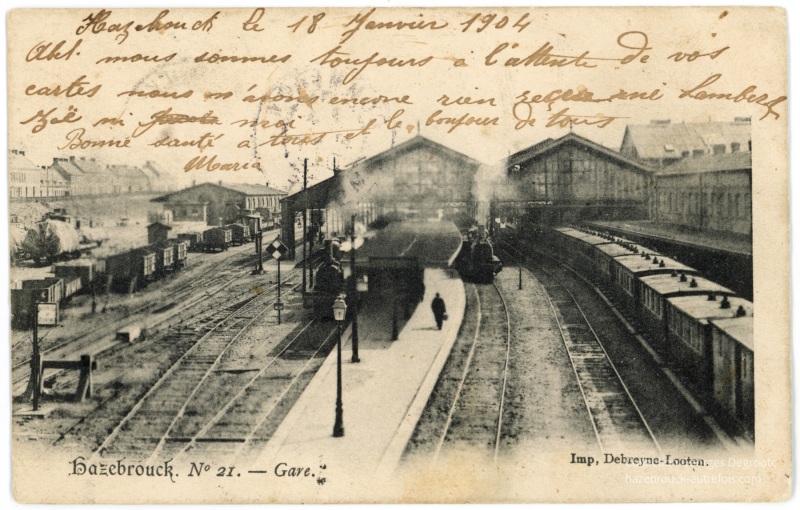 Hazebrouck le 18 Janvier 1904
Ah! nous sommes toujours à l'attente de vos
cartes nous n'avons encore rien ni Lambert
Zoë ni moi
Bonne santé à tous et le bonjour de tous
Maria
Hazebrouck. Nº 21. — Gare.
Imp, Debreyne-Looten.
hazebrouck-autrefois.com